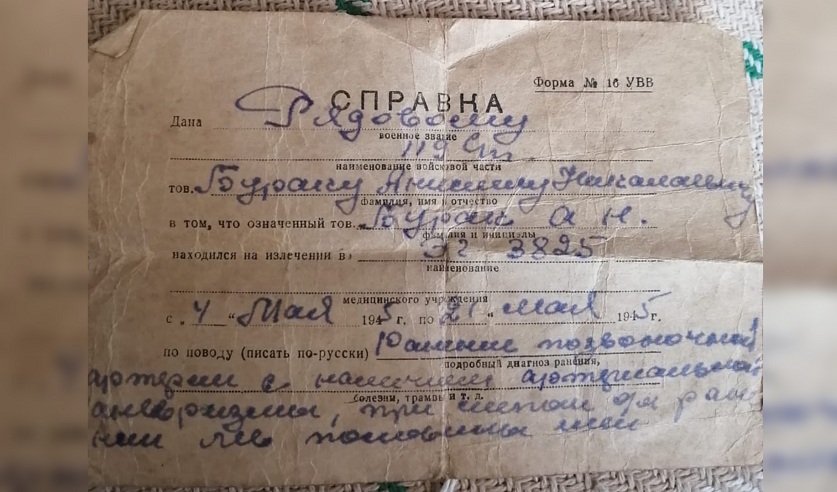 Форма № 16 УВВ
СПРАВКА
Дана Рядовому
военное звание
119 Сп.
наименование войсковой части
тов. Бураку Анисиму Николаевичу
фамилия, имя и отчество
в том, что означенный тов. Бурак А. Н.
фамилия и инициалы
находился на излечении в ЭГ 3825
наименование
медицинского учреждения
с 4 " Мая 1945 г. по 21 " мая 1945 г.
по поводу (писать по-русски) Ранение позвоночной
подробный диагноз ранения,
артерии с наличием артериальной
болезни, травмы и т. д.
аневризмы, при слепом
лев половины шеи